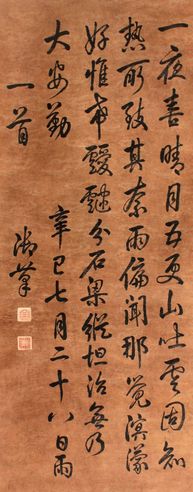 一夜喜晴月五更山吐雲固知
熱所致其奈雨偏聞那覺溟濛
好惟希靉靆分石梁縱坦治無乃
大安勤 辛巳七月二十八日雨
一首
御筆